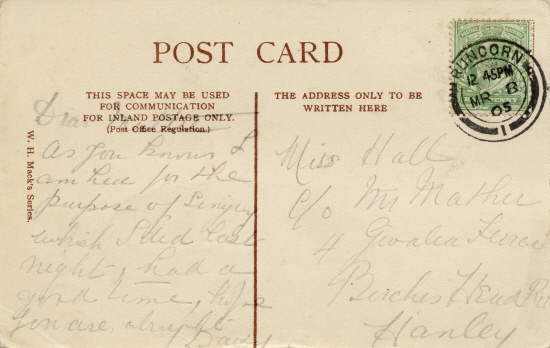 POST CARD
THIS SPACE MAY BE USED
FOR COMMUNICATION
FOR INLAND POSTAGE ONLY.
(Post Office Regulation.)
THE ADDRESS ONLY TO BE
WRITTEN HERE
W. H. Mack's Series.
RUNCORN
12 45PM
MR 8
05
1
PENNY
Dear
As you know I
am here for the
purpose of Singing
which I did last
night, had a
good time, hope
you are alright
Miss Hall
c/o Mr Mather
4 Gwalia Terrace
Birches Head Rd
Hanley